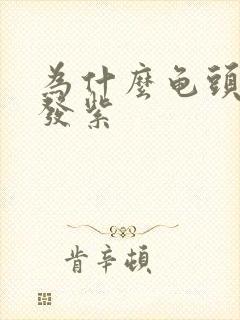 为什麼龟頭
發紫
肯辛頓